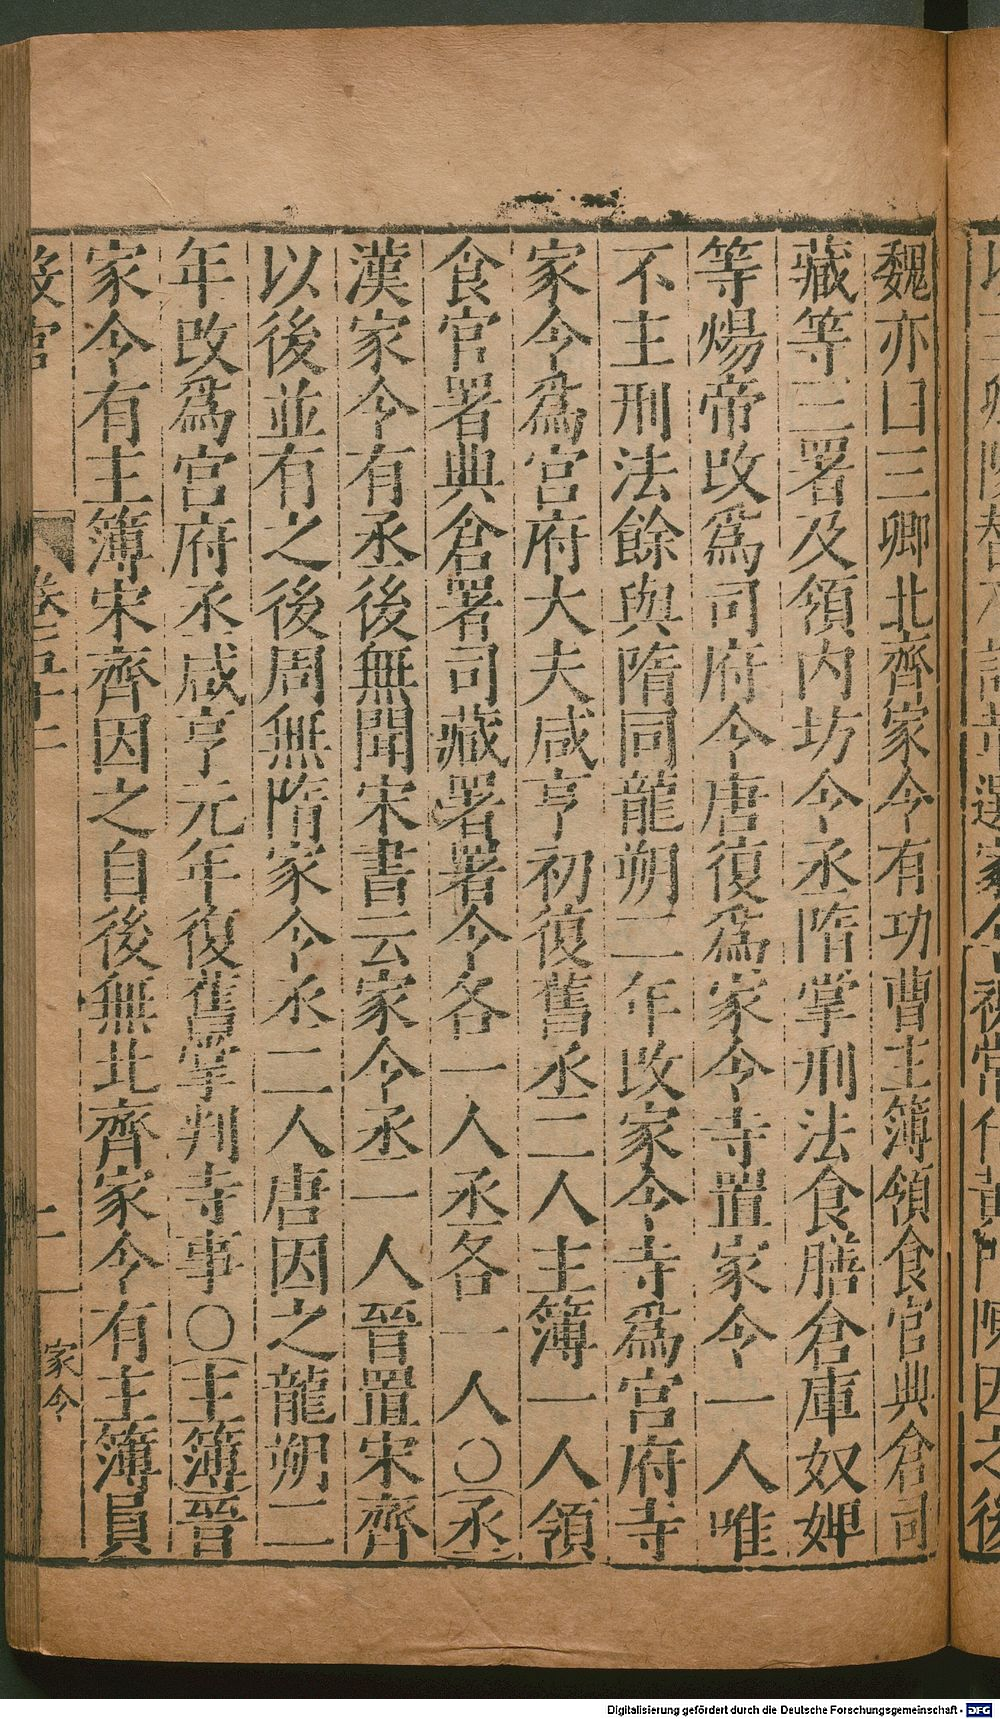 魏亦曰三卿北齊家令有功曹主簿領食官典倉司
藏等三署及領內坊令丞隋掌刑法食膳倉庫奴婢
等煬帝改爲司府令唐復爲家令寺置家令一人唯
不主刑法餘與隋同龍朔二年改家令寺爲宮府寺
家令爲宮府大夫咸亨初復舊丞二人主簿一人領
食官署典倉署司藏署署令各一人丞各一人〇丞
漢家令有丞後無聞宋書云家令丞一人晉置宋齊
以後並有之後周無隋家令丞二人唐因之龍朔二
年改爲宮府丞咸亨元年復舊掌判寺事〇主簿晉
家令有主簿宋齊因之自後無北齊家令有主簿員
設官
二
家令
Digitalisierung gefördert durch die Deutsche Forschungsgemeinschaft - DFG